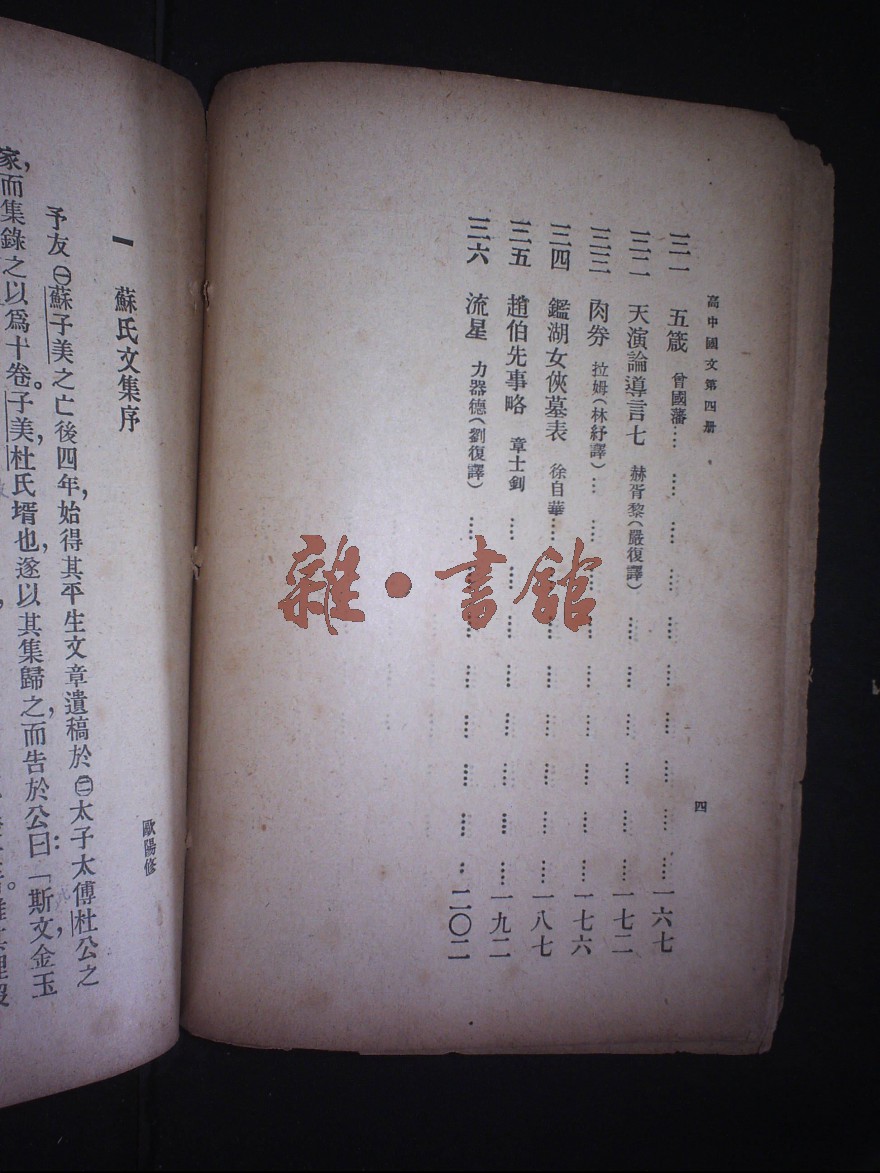 高中國文第四册
四
三一 五箴 曾國藩…………………………一六七
三二 天演論導言七 赫胥黎(嚴復譯)…………………一七二
三三 肉券 拉姆(林紓譯)…………………………一七六
三四 鑑湖女俠墓表 徐自華…………………………一八七
三五 趙伯先事略 章士釗…………………………一九二
三六 流星 力器德(劉復譯)…………………………二〇二
雜·書館
一 蘇氏文集序
歐陽修
予友㊀蘇子美之亡後四年,始得其平生文章遺稿於㊁太子太傅杜公之
家,而集錄之以爲十卷。子美,杜氏壻也,遂以其集歸之,而告於公曰:「斯文,金玉